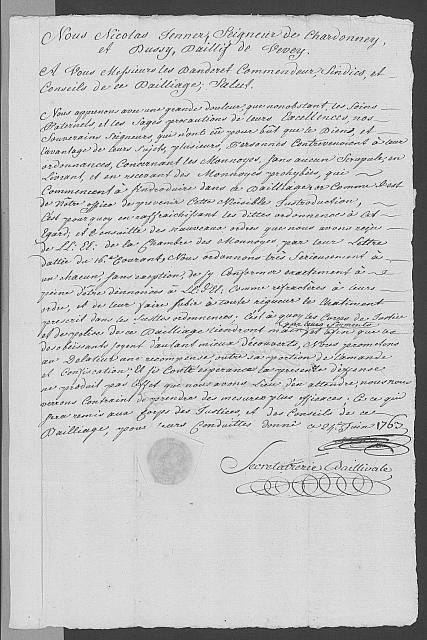 Nous Nicolas Jenner, Seigneur de Chardonney,
et Bussy, Baillif de Vevey.
A Vous Messieurs les Banderet Commendeur, Sindics, et
Conseils de ce Bailliage, Salut.
Nous apprenons avec une grande douleur que nonobstant les Soins
Paternels, et les Sages precautions de leurs Excellences, nos
Souverains Seigneurs, qui n'ont eu pour but que le Biens, et
l'avantage de leurs Sujets, plusieurs, Personnes Contreviennent à leur
ordonnances, Concernant les Monnoyes, sans aucun Scrupule, en
Livrant, et en recevant des Monnoyes prohybées, qui
Commencent à s'introduire dans ce Bailliage or Comme C'est
de Notre office de prevenir Cette Nuisible Introduction,
C'est pourquoy en raffraichissant les dittes ordonnences à cet
Egard, et Ensuitte des nouveaux ordres que nous avons reçu
de LL. EE. de la Chambre des Monnoyes par leur Lettre
dattée du 16.e Courant, Nous ordonnons très Serieusement à
un chacun, sans exception, de s'y Conformer exactement à
peine d'être dénoncés à LL. EE. Comme réfractères à leurs
ordre, et de leur faire subir à toute rigueur le Chatiment
prescrit dans les Susdites ordonnences, C'est à quoy les Corps de Justice
et de police de ce Bailliage tiendront main par leurs Serments et afin que les
desobeissants soyent d'autant mieux découverts, Nous promettons
au Delateur une recompense outre sa portion de L'amande
et Confiscation. Et si Contre esperance la presente défense
ne produit pas l'Effet que nous avons Lieu d'en attendre, nous nous
verons Contraint de prendre des mesures plus efficaces; Ce qui
sera remis aux Corps des Justices, et des Conseils de ce
Bailliage, pour leurs Conduittes donné ce 24.e Juin 1763
Secretairerie Baillivale